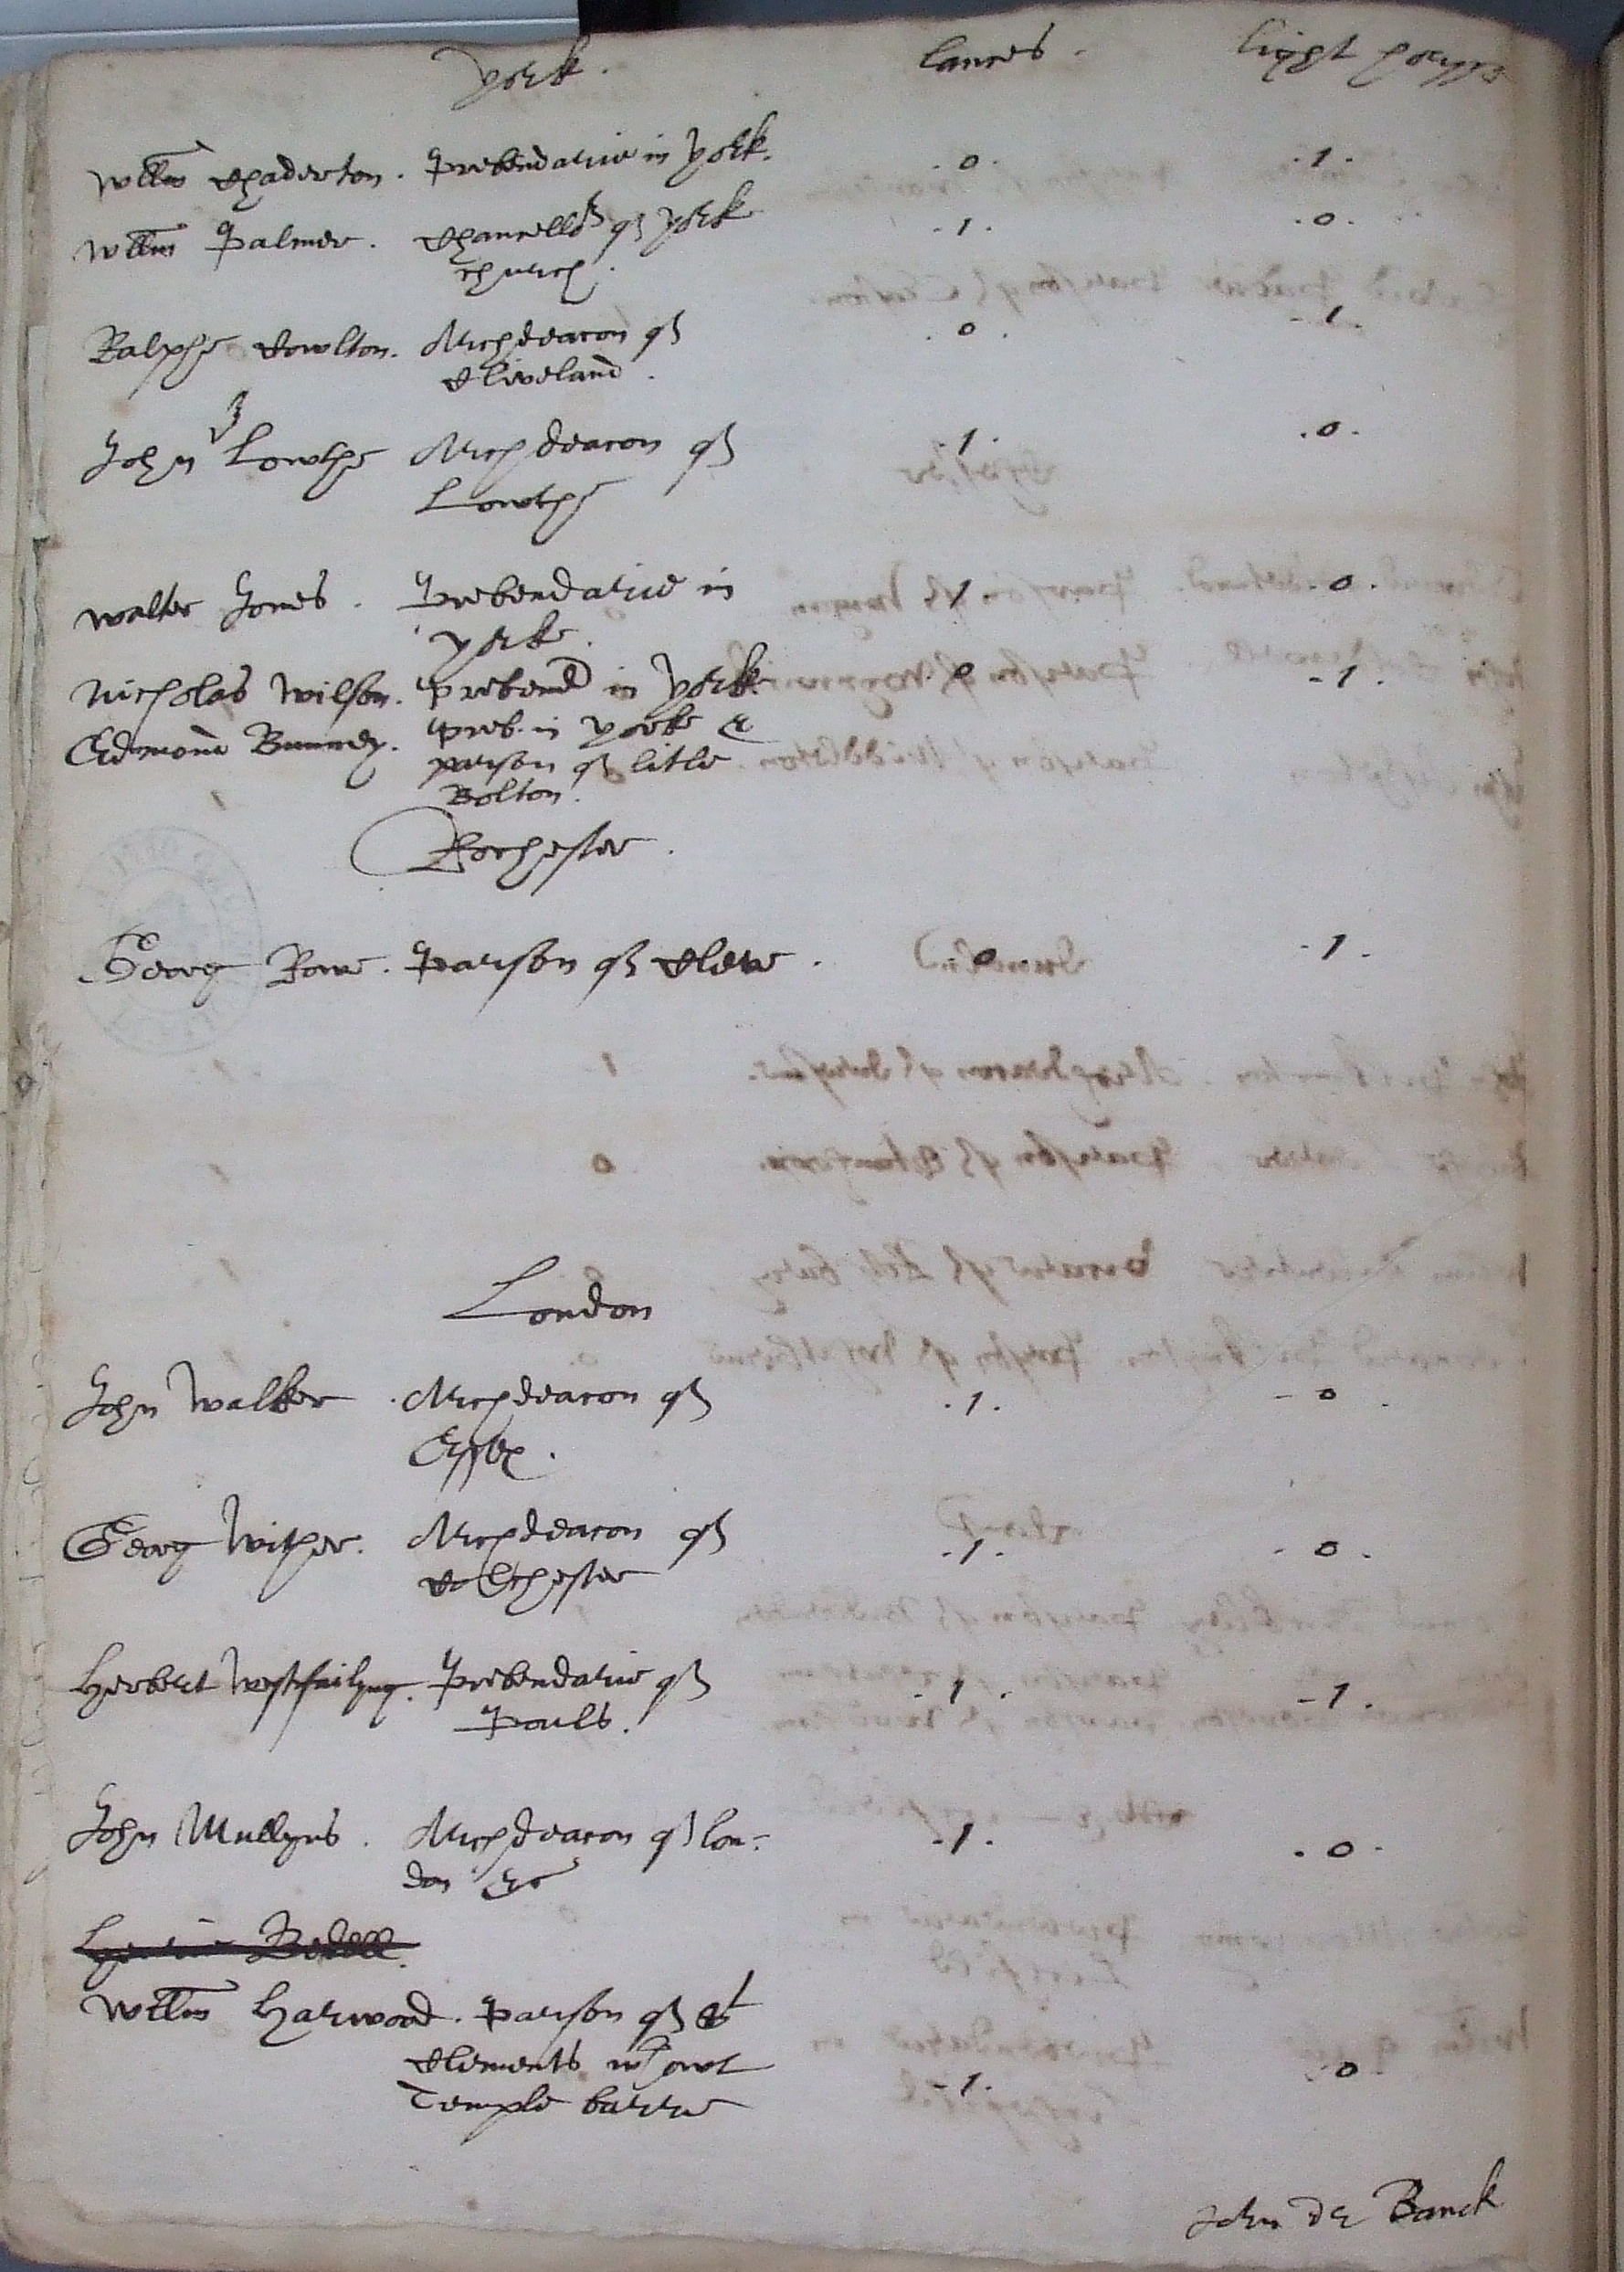 york . lances . light horsse
Willm Chaderton . Prebendarie in york . .0. .1.
Willm Palmer . Chancellor of york .1. .0.
church .
Ralphe Cowlton . Archdeacon of .0. .1.
Cliveland .
John Lowthe Archdeacon of .1. .0.
Lowthe
Walter Jones . Prebendarie in 1 .0.
yorke .
Nicholas Wilson . Prebend in york .0 .1.
Edmond Bunney . Preb. in yorke &
parson of litle
Bolton .
Rochester .
Georg Rowe . Parson of Clere . 0 .1.
London
John Walker . Archdeacon of .1. .0.
Essex .
Georg Wither . Archdeacon of .1. .0.
Colchester
Herbert Westfailyng . Prebendarie of .1. .1.
Pouls .
John Mullyns . Archdeacon of lon= .1. .0.
don &c
Bedell .
Willm Harwood . Parson of St
Clements wtowt
Temple barre .1. .0
John De Banck